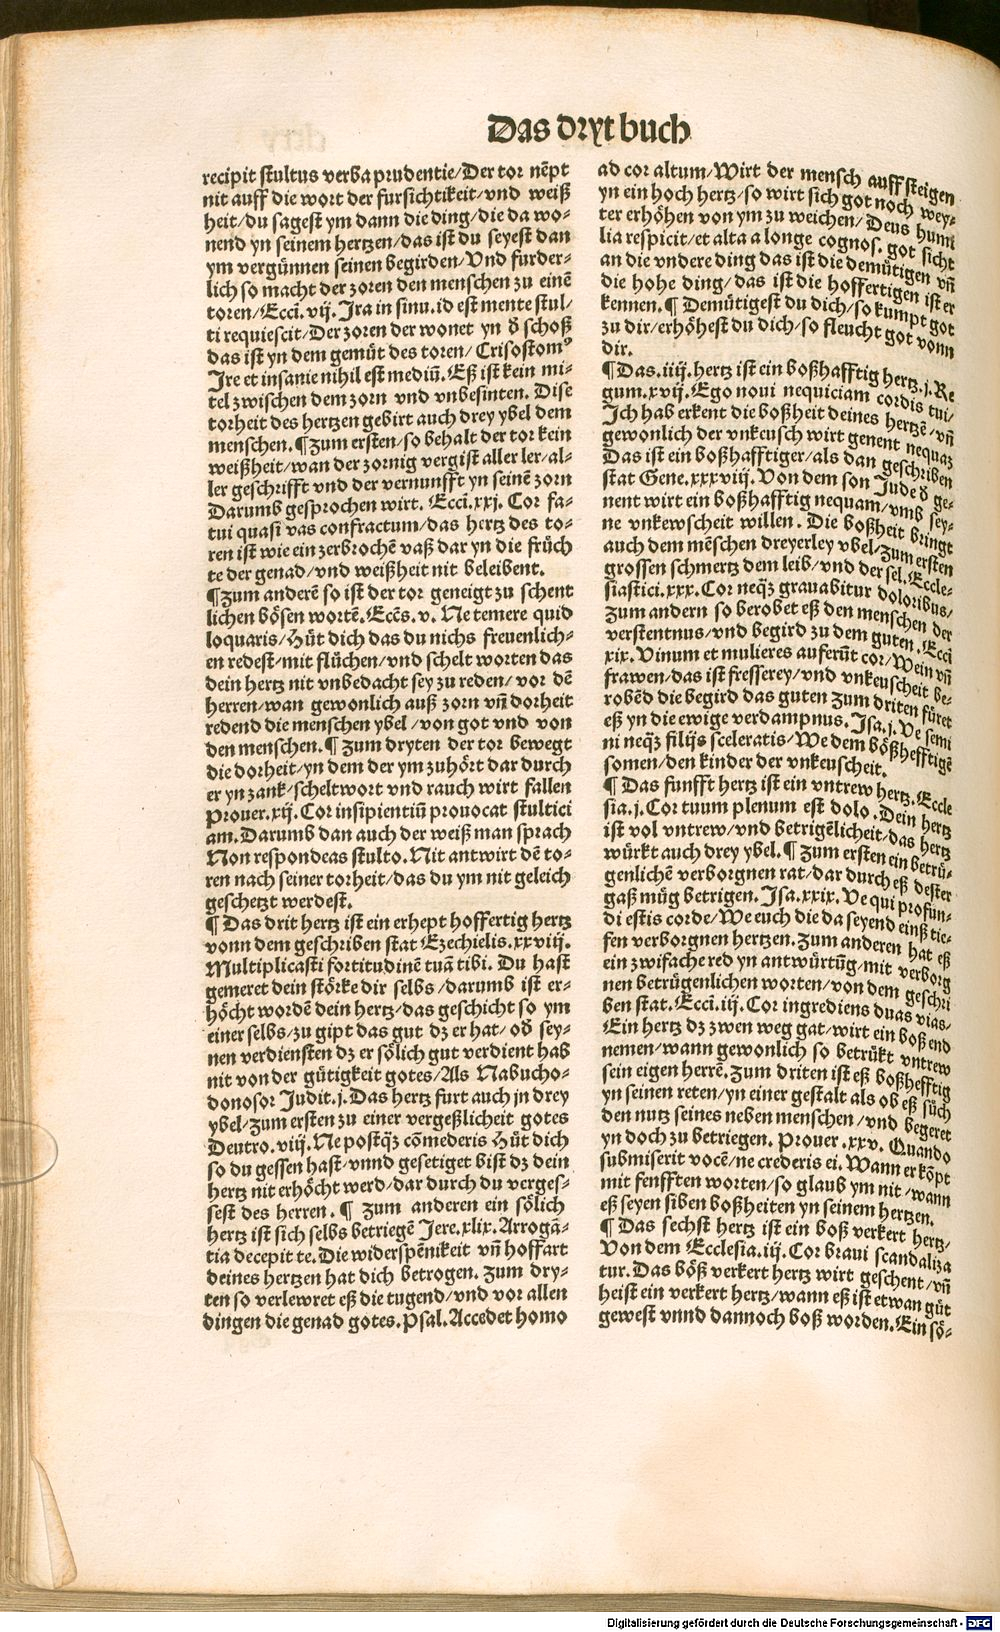 Das dryt buch
recipit stultus verba prudentie/Der tor nēpt
nit auff die wort der fursichtikeit/vnd weiß
heit/du sagest ym dann die ding/die da wo-
nend yn seinem hertzen/das ist du seyest dan
ym vergünnen seinen begirden/Vnd furder-
lich so macht der zoren den menschen zu einē
toren/Eccī. vij. Ira in sinu. id est mente stul-
ti requiescit/Der zoren der wonet yn ď schoß
das ist yn dem gemüt des toren/ Crisostomꝰ
Ire et insanie nihil est mediū. Eß ist kein mi-
tel zwischen dem zorn vnd vnbesinten. Dise
torheit des hertzen gebirt auch drey ybel dem
menschen. ¶ Zum ersten/so behalt der tor kein
weißheit/wan der zornig vergist aller ler/al-
ler geschrifft vnd der vernunfft yn seinē zorn
Darumb gesprochen wirt. Eccī. xxj. Cor fa-
tui quasi vas confractum/das hertz des to-
ren ist wie ein zerbrochē vaß dar yn die früch
te der genad/vnd weißheit nit beleibent.
¶ Zum anderē so ist der tor geneigt zu schent
lichen bösen wortē. Eccēs. v. Ne temere quid
loquaris/Hüt dich das du nichs freuenlich-
en redest/mit flüchen/vnd schelt worten das
dein hertz nit vnbedacht sey zu reden/vor dē
herren/wan gewonlich auß zorn vnd dorheit
redend die menschen ybel/von got vnd von
den menschen. ¶ Zum dryten der tor bewegt
die dorheit/yn dem der ym zuhört dar durch
er yn zank/scheltwort vnd rauch wirt fallen
Prouer. xij. Cor insipientiū prouocat stultici
am. Darumb dan auch der weiß man sprach
Non respondeas stulto. Nit antwirt dē to-
ren nach seiner torheit/das du ym nit geleich
geschetzt werdest.
¶ Das drit hertz ist ein erhept hoffertig hertz
vonn dem geschriben stat Ezechielis. xxviij.
Multiplicasti fortitudinē tuā tibi. Du hast
gemeret dein störke dir selbs/darumb ist er-
höcht wordē dein hertz/das geschicht so ym
einer selbs/zu gipt das gut dz er hat/oď sey-
nen verdiensten dz er sölich gut verdient hab
nit von der gütigkeit gotes/Als Nabucho-
donosor Judit. j. Das hertz furt auch jn drey
ybel/zum ersten zu einer vergeßlicheit gotes
Deutro. viij. Ne postqȝ cōmederis Hüt dich
so du gessen hast/vnnd gesetiget bist dz dein
hertz nit erhöcht werd/dar durch du verges-
sest des herren. ¶ Zum anderen ein sölich
hertz ist sich selbs betriegē Jere. xlix. Arrogā-
tia decepit te. Die widerspēnikeit vñ hoffart
deines hertzen hat dich betrogen. Zum dry-
ten so verlewret eß die tugend/vnd vor allen
dingen die genad gotes. Psal. Accedet homo
ad cor altum/Wirt der mensch auff steigen
yn ein hoch hertz/so wirt sich got noch wey-
ter erhöhen von ym zu weichen/ Deus humi
lia respicit/et alta a longe cognos. got sicht
an die vndere ding das ist die demütigen vñ
die hohe ding/das ist die hoffertigen ist er
kennen. ¶ Demütigest du dich/so kumpt got
zu dir/erhöhest du dich/so fleucht got vonn
dir.
¶ Das. iiij. hertz ist ein boßhafftig hertz. j. Re
gum. xvij. Ego noui nequiciam cordis tui/
Ich hab erkent die boßheit deines hertzē/vñ
gewonlich der vnkeusch wirt genent nequaz
Das ist ein boßhafftiger/als dan geschriben
stat Gene. xxxviij. Von dem son Jude ď ge-
nent wirt ein boßhafftig nequam/vmb sey-
ne vnkewscheit willen. Die boßheit bringt
auch dem mēschen dreyerley vbel/zum ersten
grossen schmertz dem leib/vnd der sel. Eccle-
siastici. xxx. Cor neqȝ grauabitur doloribus/
Zum andern so berobet eß den menschen der
verstentnus/vnd begird zu dem guten. Eccī
xix. Vinum et mulieres auferūt cor/Wein vñ
frawen/das ist fresserey/vnd vnkeuscheit be-
robēd die begird das guten zum driten füret
eß yn die ewige verdampnus. Isa. j. Ve semi
ni neqȝ filijs sceleratis/We dem bößhefftigē
somen/den kinder der vnkeuscheit.
¶ Das funfft hertz ist ein vntrew hertz. Eccle
sia. j. Cor tuum plenum est dolo. Dein hertz
ist vol vntrew/vnd betrigēlicheit/das hertz
würkt auch drey ybel. ¶ Zum ersten ein betrü-
genlichē verborgnen rat/dar durch eß dester
gaß müg betrigen. Isa. xxix. Ve qui profun-
di estis corde/We euch die da seyend einß tie-
fen verborgnen hertzen. Zum anderen hat eß
ein zwifache red yn antwürtūg/mit verborg
nen betrügenlichen worten/von dem geschri
ben stat. Eccī. iij. Cor ingrediens duas vias/
Ein hertz dz zwen weg gat/wirt ein boß end
nemen/wann gewonlich so betrükt vntrew
sein eigen herrē. Zum driten ist eß boßhefftig
yn seinen reten/yn einer gestalt als ob eß süch
den nutz seines neben menschen/vnd begeret
yn doch zu betriegen. Prouer. xxv. Quando
submiserit vocē/ne crederis ei. Wann er kōpt
mit fenfften worten/so glaub ym nit/wann
eß seyen siben boßheiten yn seinem hertzen.
¶ Das sechst hertz ist ein boß verkert hertz/
Von dem Ecclesia. iij. Cor braui scandaliza
tur. Das böß verkert hertz wirt geschent/vñ
heist ein verkert hertz/wann eß ist etwan güt
gewest vnnd dannoch boß worden. Ein sö-
Digitalisierung gefördert durch die Deutsche Forschungsgemeinschaft - DFG